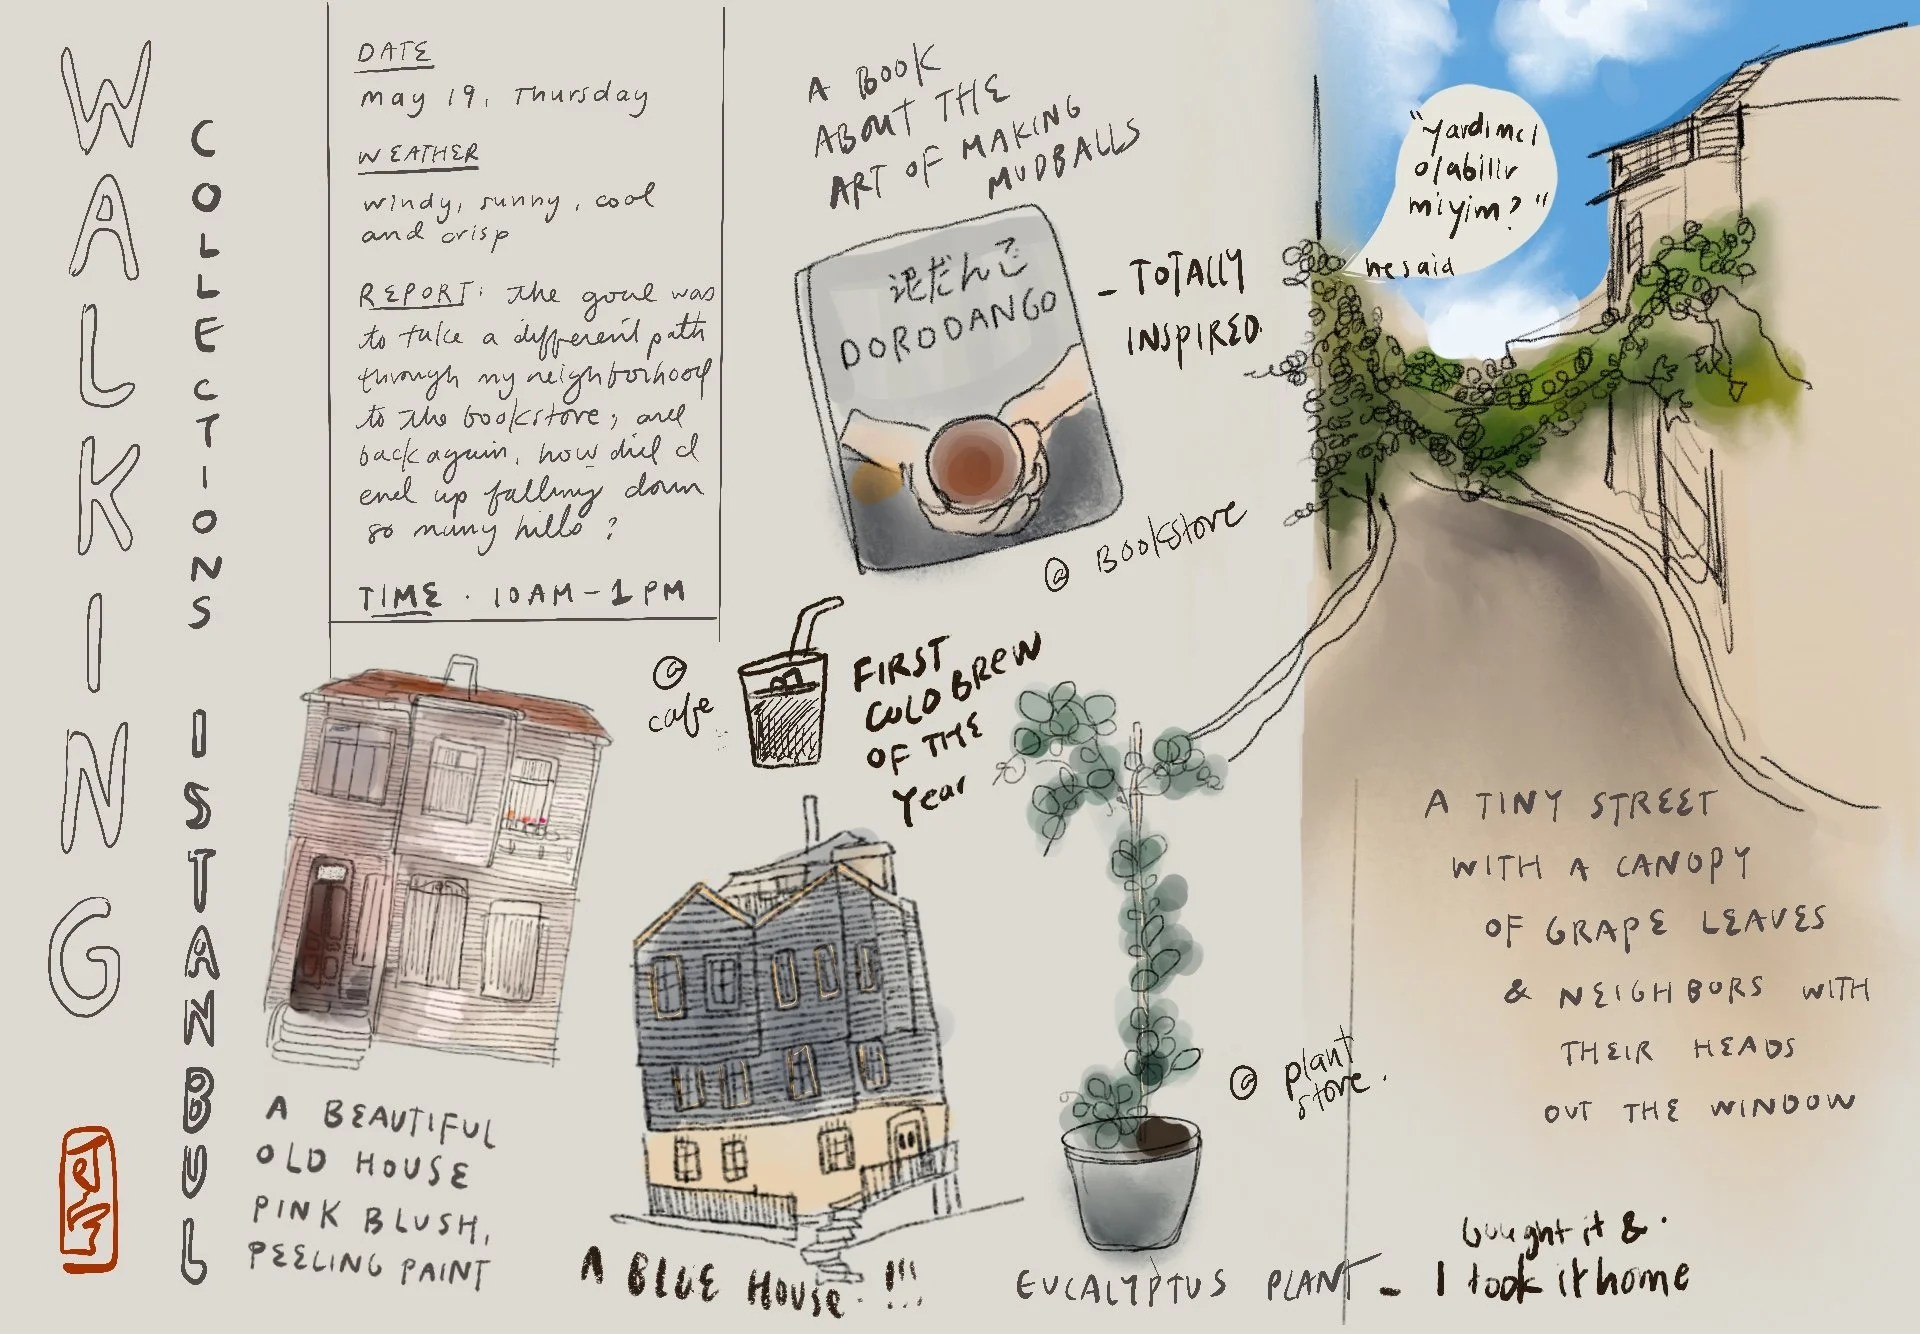 WALKING
COLLECTIONS ISTANBUL
DATE
may 19, Thursday
WEATHER
windy, sunny, cool
and crisp
REPORT: The goal was
to take a different path
through my neighborhood
to the bookstore, and
back again, how did I
end up falling down
so many hills?
TIME . 10AM - 1PM
A BOOK
ABOUT THE
ART OF MAKING
MUDBALLS
泥だんご
DORODANGO
- TOTALLY
INSPIRED.
@ Bookstore
"yardımcı
olabilir
miyim?"
he said
@
cafe
FIRST
COLD BREW
OF THE
Year
A BEAUTIFUL
OLD HOUSE
PINK BLUSH,
PEELING PAINT
A BLUE House !!!
@ plant
store.
EUCALYPTUS PLANT -
bought it &
I took it home
A TINY STREET
WITH A CANOPY
OF GRAPE LEAVES
& NEIGHBORS WITH
THEIR HEADS
OUT THE WINDOW